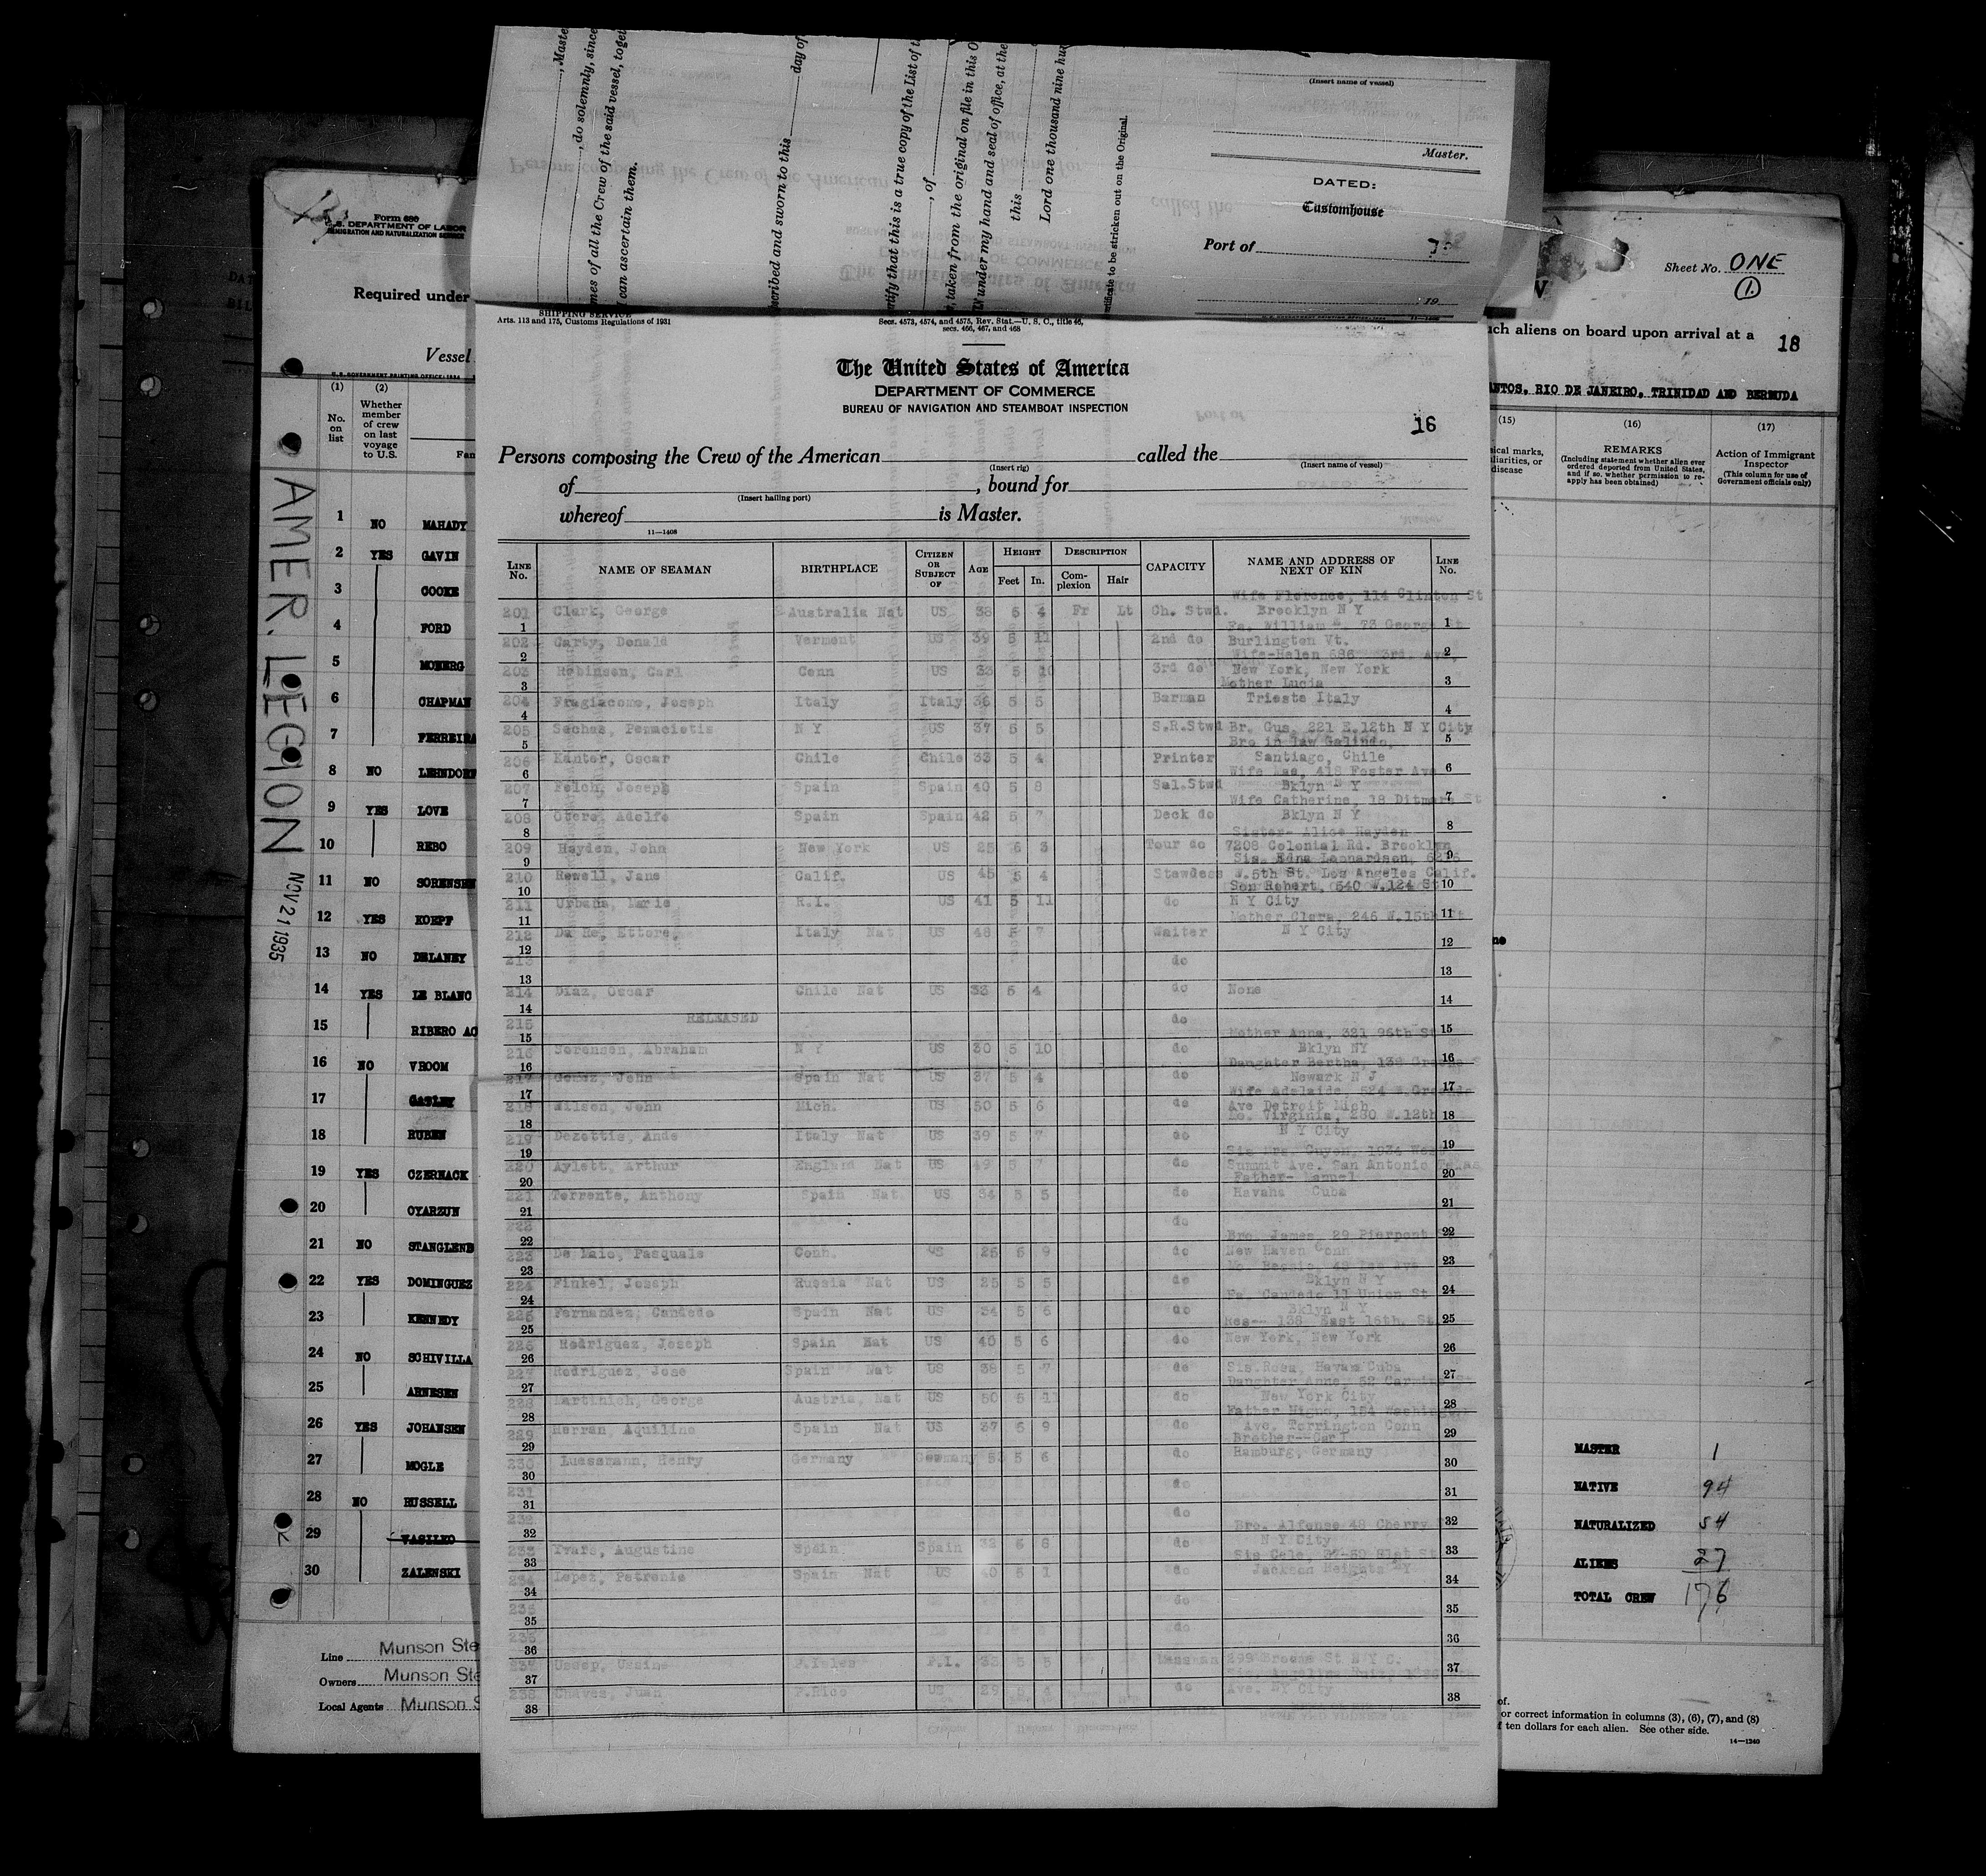 Form 680
U.S. DEPARTMENT OF LABOR
IMMIGRATION AND NATURALIZATION SERVICE
Required under
Vessel
U.S. GOVERNMENT PRINTING OFFICE: 1934
(1) (2)
No. on list
Whether member of crew on last voyage to U.S.
1 NO MAHADY
2 YES GAVIN
3 COOKE
4 FORD
5 MOBERG
6 CHAPMAN
7 FERREIRA
8 NO LEHNDORF
9 YES LOVE
10 REBO
11 NO SORENSEN
12 YES KOEPF
13 NO DELANEY
14 YES LE BLANC
15 RIBERO AC
16 NO VROOM
17 GATLEY
18 RUBEN
19 YES CZERNACK
20 OYARZUN
21 NO STANGLEND
22 YES DOMINGUEZ
23 KENNEDY
24 NO SCHIVILLA
25 ARNESEN
26 YES JOHANSEN
27 MOGLE
28 NO RUSSELL
29 VASILKO
30 ZALENSKI
Line Munson Ste
Owners Munson Ste
Local Agents Munson S
AMER. LEGION
NOV 21 1935
, Maste
, do solemnly, since
mes of all the Crew of the said vessel, toget
I can ascertain them.
scribed and sworn to this day of
rtify that this is a true copy of the List of t
, of
t, taken from the original on file in this O
under my hand and seal of office, at the
this
Lord one thousand nine hu
rtificate to be stricken out on the Original.
(Insert name of vessel)
Master.
DATED:
Customhouse
Port of
, 19
SHIPPING SERVICE
Arts. 113 and 175, Customs Regulations of 1931
Secs. 4573, 4574, and 4575, Rev. Stat.—U. S. C., title 46,
secs. 466, 467, and 468
The United States of America
DEPARTMENT OF COMMERCE
BUREAU OF NAVIGATION AND STEAMBOAT INSPECTION
16
Persons composing the Crew of the American called the
(Insert rig) (Insert name of vessel)
of , bound for
(Insert hailing port)
whereof is Master.
11—1408
LINE No. NAME OF SEAMAN BIRTHPLACE CITIZEN OR SUBJECT OF AGE HEIGHT Feet In. DESCRIPTION Complexion Hair CAPACITY NAME AND ADDRESS OF NEXT OF KIN LINE No.
Wife Florence, 114 Clinton St
201 Clark, George Australia Nat US 38 5 4 Fr Lt Ch. Stwd. Brooklyn N Y
1 Fa. William 73 George St 1
202 Carty, Donald Vermont US 39 5 11 2nd do Burlington Vt.
2 Wife-Helen 686 3rd. Ave, 2
203 Robinson, Carl Conn US 33 5 10 3rd do New York, New York
3 Mother Lucia 3
204 Fragiacomo, Joseph Italy Italy 36 5 5 Barman Trieste Italy
4 4
205 Saches, Penaciotis N Y US 37 5 5 S.R.Stwd Br. Gus, 221 E.12th N Y City
5 Bro in law Galindo, 5
206 Kanter, Oscar Chile Chile 33 5 4 Printer Santiago, Chile
6 Wife Mae, 418 Foster Ave 6
207 Folch, Joseph Spain Spain 40 5 8 Sal.Stwd Bklyn N Y
7 Wife Catherine, 18 Ditmars St 7
208 Otero, Adolfo Spain Spain 42 5 7 Deck do Bklyn N Y
8 Sister- Alice Hayden 8
209 Hayden, John New York US 25 6 3 Tour do 7208 Colonial Rd. Brooklyn
9 Sis. Edna Leonardson, 9
210 Rewell, Jane Calif. US 45 5 4 Stewdess W.5th St. Los Angeles Calif.
10 Son Robert, 540 W.124 St 10
211 Urbans, Marie R.I. US 41 5 11 do N Y City
11 Mother Clara, 246 W.15th St 11
212 Da Re, Ettore, Italy Nat US 48 5 7 Waiter N Y City
12 12
213 do
13 13
214 Diaz, Oscar Chile Nat US 33 5 4 do None
14 14
215 RELEASED do
15 Mother Anna, 321 96th St 15
216 Jorensen, Abraham N Y US 30 5 10 do Bklyn NY
16 Daughter Bertha, 16
217 Gomez, John Spain Nat US 37 5 4 do Newark N J
17 Wife Adelaide, 524 17
218 Wilson, John Mich. US 50 5 6 do Ave Detroit Mich
18 Mo. Virginia, 230 W.12th 18
219 Dezettis, Ande Italy Nat US 39 5 7 do N Y City
19 Sis Mrs. Guyon, 1934 West 19
220 Aylett, Arthur England Nat US 49 5 7 do Summit Ave. San Antonio Texas
20 Father- Manuel 20
221 Torrente, Anthony Spain Nat US 34 5 5 do Havana Cuba
21 21
222 do
22 Bro. James, 29 Pierpont St 22
223 De Maio, Pasquale Conn. US 25 5 9 do New Haven Conn
23 23
224 Finkel, Joseph Russia Nat US 25 5 5 do Bklyn N Y
24 Fa. Candedo 11 Union St 24
225 Fernandez, Candedo Spain Nat US 34 5 6 do Bklyn N Y
25 Res-- 138 East 16th. St 25
226 Rodriguez, Joseph Spain Nat US 40 5 6 do New York, New York
26 26
227 Rodriguez, Jose Spain Nat US 38 5 7 do Sis.Rosa, Havana Cuba
27 Daughter Anne, 52 27
228 Martinich, George Austria, Nat US 50 5 11 do New York City
28 Father Higno, 154 Washington 28
229 Herran, Aquilino Spain Nat US 37 5 9 do Ave. Torrington Conn
29 Brother--Carl 29
230 Luessmann, Henry Germany Germany 5 6 do Hamburg, Germany
30 30
231 do
31 31
232 do
32 Bro. Alfonse 48 Cherry 32
233 Yvars, Augustine Spain Spain 32 5 8 do N Y City
33 33
234 Lopez, Petronio Spain Nat US 40 5 1 do Jackson Heights NY
34 34
235 do
35 35
236 do
36 36
237 P.I. 33 5 5 Messman 299 Broome St N Y C.
37 37
238 Chavez, Juan P.Rico US 29 5 4 do Ave. NY City
38 38
Sheet No. ONE
1
uch aliens on board upon arrival at a 18
ANTOS, RIO DE JANEIRO, TRINIDAD AND BERMUDA
(15) (16) (17)
sical marks, uliarities, or disease
REMARKS
(Including statement whether alien ever ordered deported from United States, and if so, whether permission to reapply has been obtained)
Action of Immigrant Inspector
(This column for use of Government officials only)
MASTER 1
NATIVE 94
NATURALIZED 54
ALIENS 27
TOTAL CREW 176
of.
or correct information in columns (3), (6), (7), and (8)
f ten dollars for each alien. See other side.
14—1240